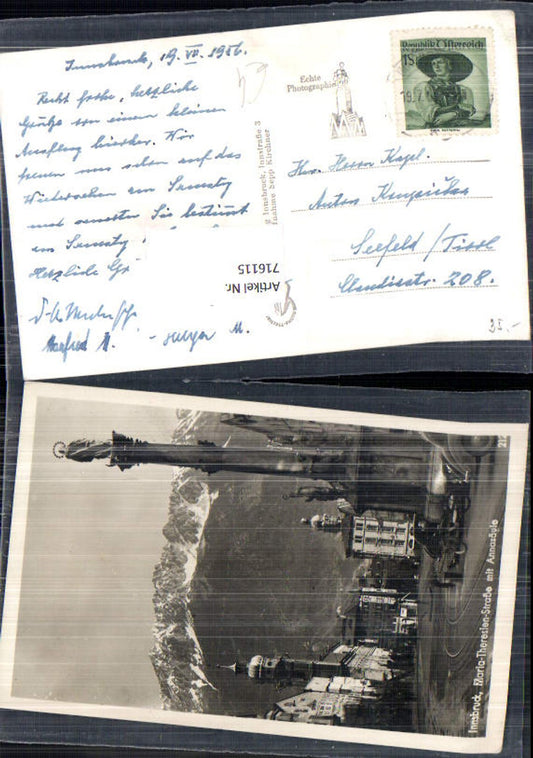 Innsbruck, 19. VII. 1956.
Recht frohe, herzliche
Grüße von einem kleinen
Ausflug hierher. Wir
freuen uns schon auf das
Wiedersehen am Samstag
und erwarten Sie bestimmt
am Samstag
Herzliche Grü
Manfred M. - Helga M.
Echte
Photographie
g Innsbruck, Innstraße 3
fnahme Sepp Kirchner
Republik Österreich
1S
19.7
Artikel Nr.
716115
Herrn Kapl.
Anton
Seefeld / Tirol
Claudiastr. 208.
Innsbruck, Maria-Theresien-Straße mit Annasäule